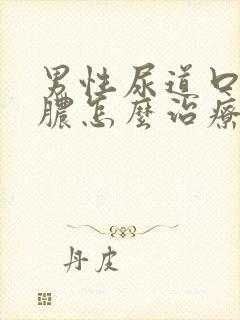 男性尿道口
膿怎麼治療
丹皮